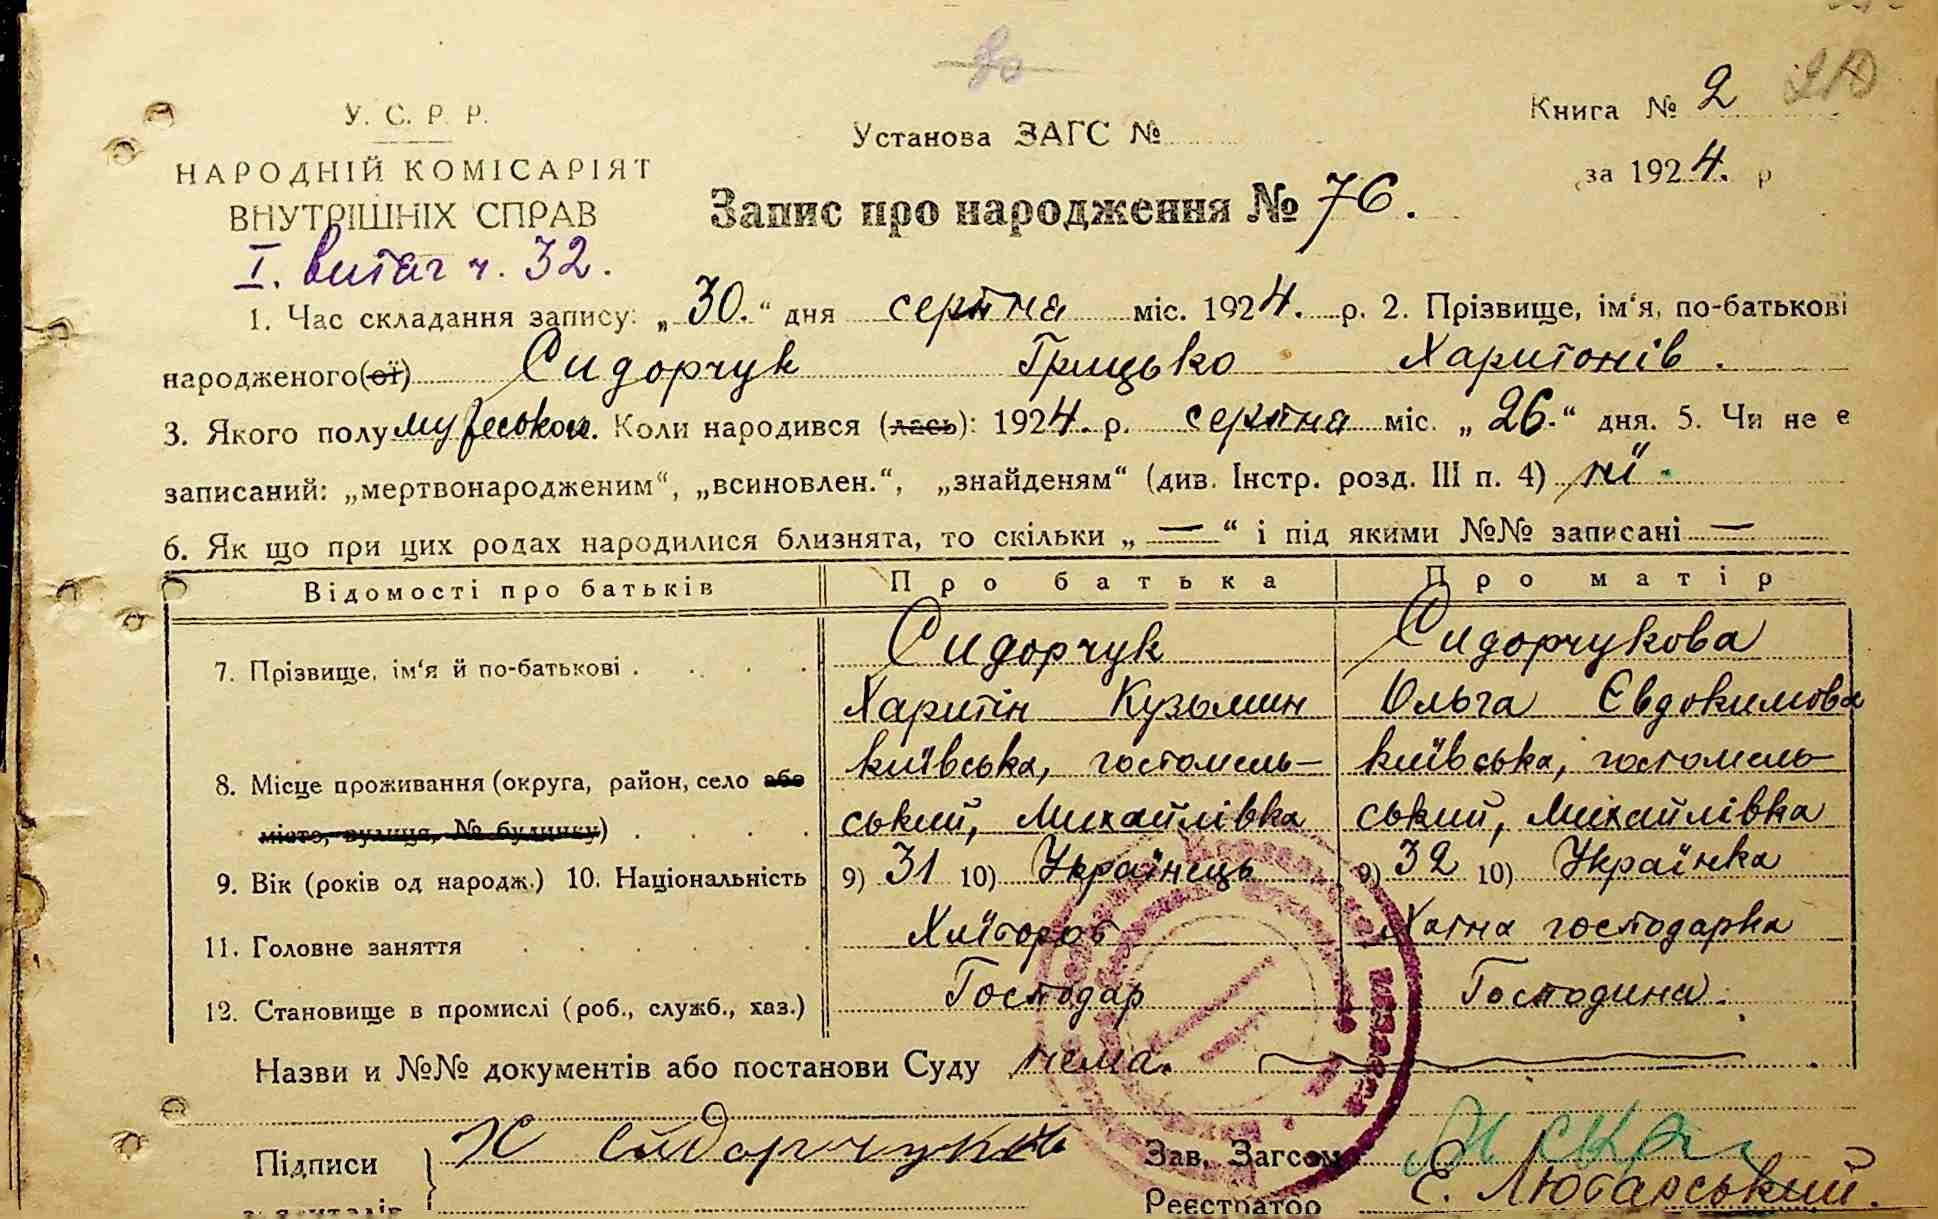 У. С. Р. Р.
НАРОДНІЙ КОМІСАРІЯТ
ВНУТРІШНІХ СПРАВ
І. витяг ч. 32.
Установа ЗАГС №
Книга № 2
за 1924. р
Запис про народження № 76.
1. Час складання запису: „30.“ дня серпня міс. 1924. р. 2. Прізвище, ім‘я, по-батькові
народженого(ої) Сидорчук Грицько Харитонів.
3. Якого полу мужеського. Коли народився (лась): 1924. р. серпня міс. „26.“ дня. 5. Чи не є
записаний: „мертвонародженим“, „всиновлен.“, „знайденям“ (див. Інстр. розд. III п. 4) ні.
6. Як що при цих родах народилися близнята, то скільки „—“ і під якими №№ записані —
Відомості про батьків Про батька Про матір
7. Прізвище, ім‘я й по-батькові . . . . Сидорчук Сидорчукова
Харитін Кузьмин Ольга Євдокимова
8. Місце проживання (округа, район, село або київська, гостомель- київська, гостомель-
місто, вулиця, № будинку) . . . . ський, Михайлівка ський, Михайлівка
9. Вік (років од народж.) 10. Національність 9) 31 10) Українець 9) 32 10) Українка
11. Головне заняття . . . . Хлібороб Хатна господарка
12. Становище в промислі (роб., служб., хаз.) Господар Господиня.
Назви и №№ документів або постанови Суду нема.
Підписи Х Сидорчук Зав. Загсом
Реєстратор Є. Лютарський.